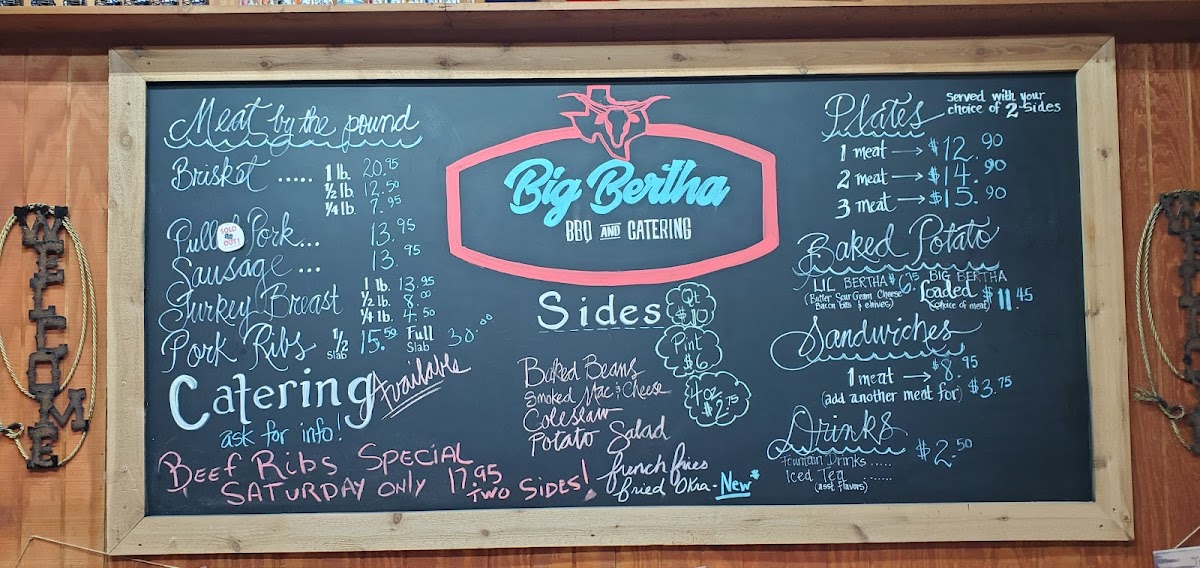 WELCOME
Meat by the pound
Brisket ..... 1 lb. 20.95
½ lb. 12.50
¼ lb. 7.95
Pulled Pork... 13.95
SOLD OUT!
Sausage ... 13.95
Turkey Breast 1 lb. 13.95
½ lb. 8.00
¼ lb. 4.50
Pork Ribs ½ Slab 15.50 Full Slab 30.00
Catering Available
ask for info!
Beef Ribs Special
Saturday only 17.95
Two Sides!
Big Bertha
BBQ AND CATERING
Sides
Qt $10
Pint $6
4 oz. $2.75
Baked Beans
Smoked Mac & Cheese
Coleslaw
Potato Salad
french fries
fried Okra - New*
Plates served with your
choice of 2-sides
1 meat → $12.90
2 meat → $14.90
3 meat → $15.90
Baked Potato
LIL BERTHA $6.75
(Butter Sour Cream Cheese
Bacon bits & chives)
BIG BERTHA
Loaded $11.45
(choice of meat)
Sandwiches
1 meat → $8.95
(add another meat for) $3.75
Drinks $2.50
Fountain Drinks .....
Iced Tea ......
(asst flavors)
WELCOME